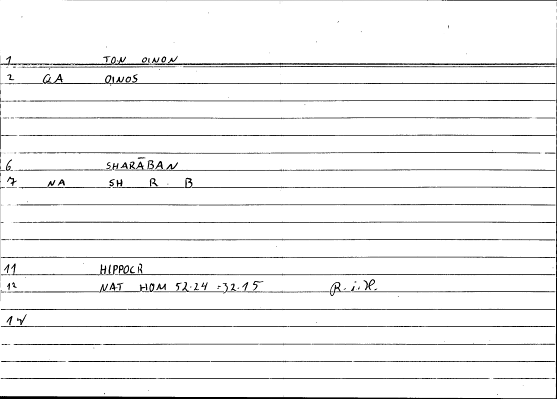 1 TON OINON
2 GA OINOS
6 SHARĀBAN
7 NA SH R B
11 HIPPOCR
12 NAT HOM 52.24 =32.15 R.i.H.
14